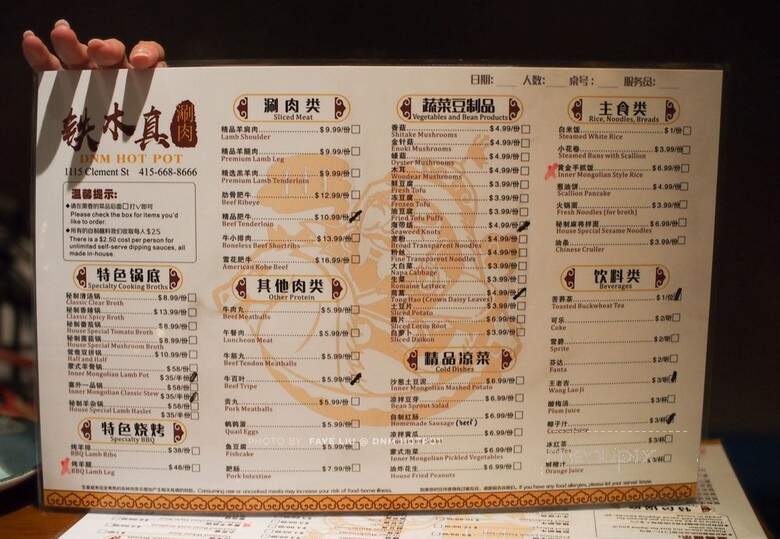 铁木真 涮肉
DNM HOT POT
1115 Clement St 415-668-8666
温馨提示:
Please check the box for items you'd
like to order.
所有的自制蘸料我们收取每人$2.5
There is a $2.50 cost per person for
unlimited self-serve dipping sauces, all
made in-house.
特色锅底
Specialty Cooking Broths
秘制清汤锅 $8.99/份
Classic Clear Broth
秘制香辣锅 $13.99/份
Classic Spicy Broth
秘制番茄锅 $8.99/份
House Special Tomato Broth
秘制菌菇锅 $8.99/份
House Special Mushroom Broth
鸳鸯双拼锅 $10.99/份
Half and Half
蒙式羊骨锅 $35/半份
Inner Mongolian Lamb Pot
塞外一品锅 $35/半份
Inner Mongolian Classic Stew
秘制羊杂锅 $38/份
House Special Lamb Haslet
特色烧烤
Specialty BBQ
烤羊排 $38/份
BBQ Lamb Ribs
烤羊腿 $48/份
BBQ Lamb Leg
涮肉类
Sliced Meat
精品羊肩肉 $9.99/份
Lamb Shoulder
精品羊腿肉 $9.99/份
Premium Lamb Leg
精选羔羊肉 $9.99/份
Premium Lamb Tenderloin
肋骨肥牛 $8.99/份
Beef Ribeye
精品肥牛 $10.99/份
Beef Tenderloin
牛小排肉 $13.99/份
Boneless Beef Shortribs
雪花肥牛 $16.99/份
American Kobe Beef
其他肉类
Other Protein
牛肉丸 $5.99/份
Beef Meatballs
午餐肉 $5.99/份
Luncheon Meat
牛筋丸 $5.99/份
Beef Tendon Meatballs
牛百叶 $5.99/份
Beef Tripe
贡丸 $5.99/份
Pork Meatballs
鹌鹑蛋 $5.99/份
Quail Eggs
鱼豆腐 $5.99/份
Fishcake
肥肠 $7.99/份
Pork Intestine
日期: 人数: 桌号: 服务员:
蔬菜豆制品
Vegetables and Bean Products
香菇 $4.99/份
Shitake Mushrooms
金针菇 $4.99/份
Enoki Mushrooms
蚝菇 $4.99/份
Oyster Mushrooms
木耳 $4.99/份
Woodear Mushrooms
鲜豆腐 $3.99/份
Fresh Tofu
冻豆腐 $3.99/份
Frozen Tofu
油豆腐 $3.99/份
Fried Tofu Puffs
海带结 $4.99/份
Seaweed Knots
宽粉 $3.99/份
Broad Transparent Noodles
粉丝 $3.99/份
Fine Transparent Noodles
大白菜 $3.99/份
Napa Cabbage
生菜 $3.99/份
Romaine Lettuce
茼蒿 $4.99/份
Tong Hao (Crown Daisy Leaves)
土豆片 $3.99/份
Sliced Potato
藕片 $4.99/份
Sliced Lotus Root
白萝卜 $3.99/份
Sliced Daikon
精品凉菜
Cold Dishes
沙葱土豆泥 $6.99/份
Inner Mongolian Mashed Potato
凉拌豆芽 $6.99/份
Bean Sprout Salad
自制红肠 $6.99/份
Homemade Sausage (beef)
凉拌黄瓜 $6.99/份
蒙式泡菜 $6.99/份
Inner Mongolian Pickled Vegetables
油炸花生 $6.99/份
House Fried Peanuts
主食类
Rice, Noodles, Breads
白米饭 $1/份
Steamed White Rice
小花卷 $3.99/份
Steamed Buns with Scallion
黄金手抓饭 $6.99/份
Inner Mongolian Style Rice
葱油饼 $4.99/份
Scallion Pancake
火锅面 $3.99/份
Fresh Noodles (for broth)
秘制麻将拌面 $6.99/份
House Special Sesame Noodles
油条 $3.99/份
Chinese Cruller
饮料类
Beverages
苦荞茶 $1/位
Toasted Buckwheat Tea
可乐 $2/杯
Coke
雪碧 $2/杯
Sprite
芬达 $2/杯
Fanta
王老吉 $3/杯
Wang Lao Ji
酸梅汤 $3/杯
Plum Juice
椰子汁 $3/杯
Coconut Juice
冰红茶 $3/杯
Iced Tea
鲜橙汁 $3/杯
Orange Juice
Consuming raw or uncooked meats may increase your risk of food-borne illness.
If you have any food allergies, please let your server know.
PHOTO BY FAYE LIU @ DNM HOTPOT